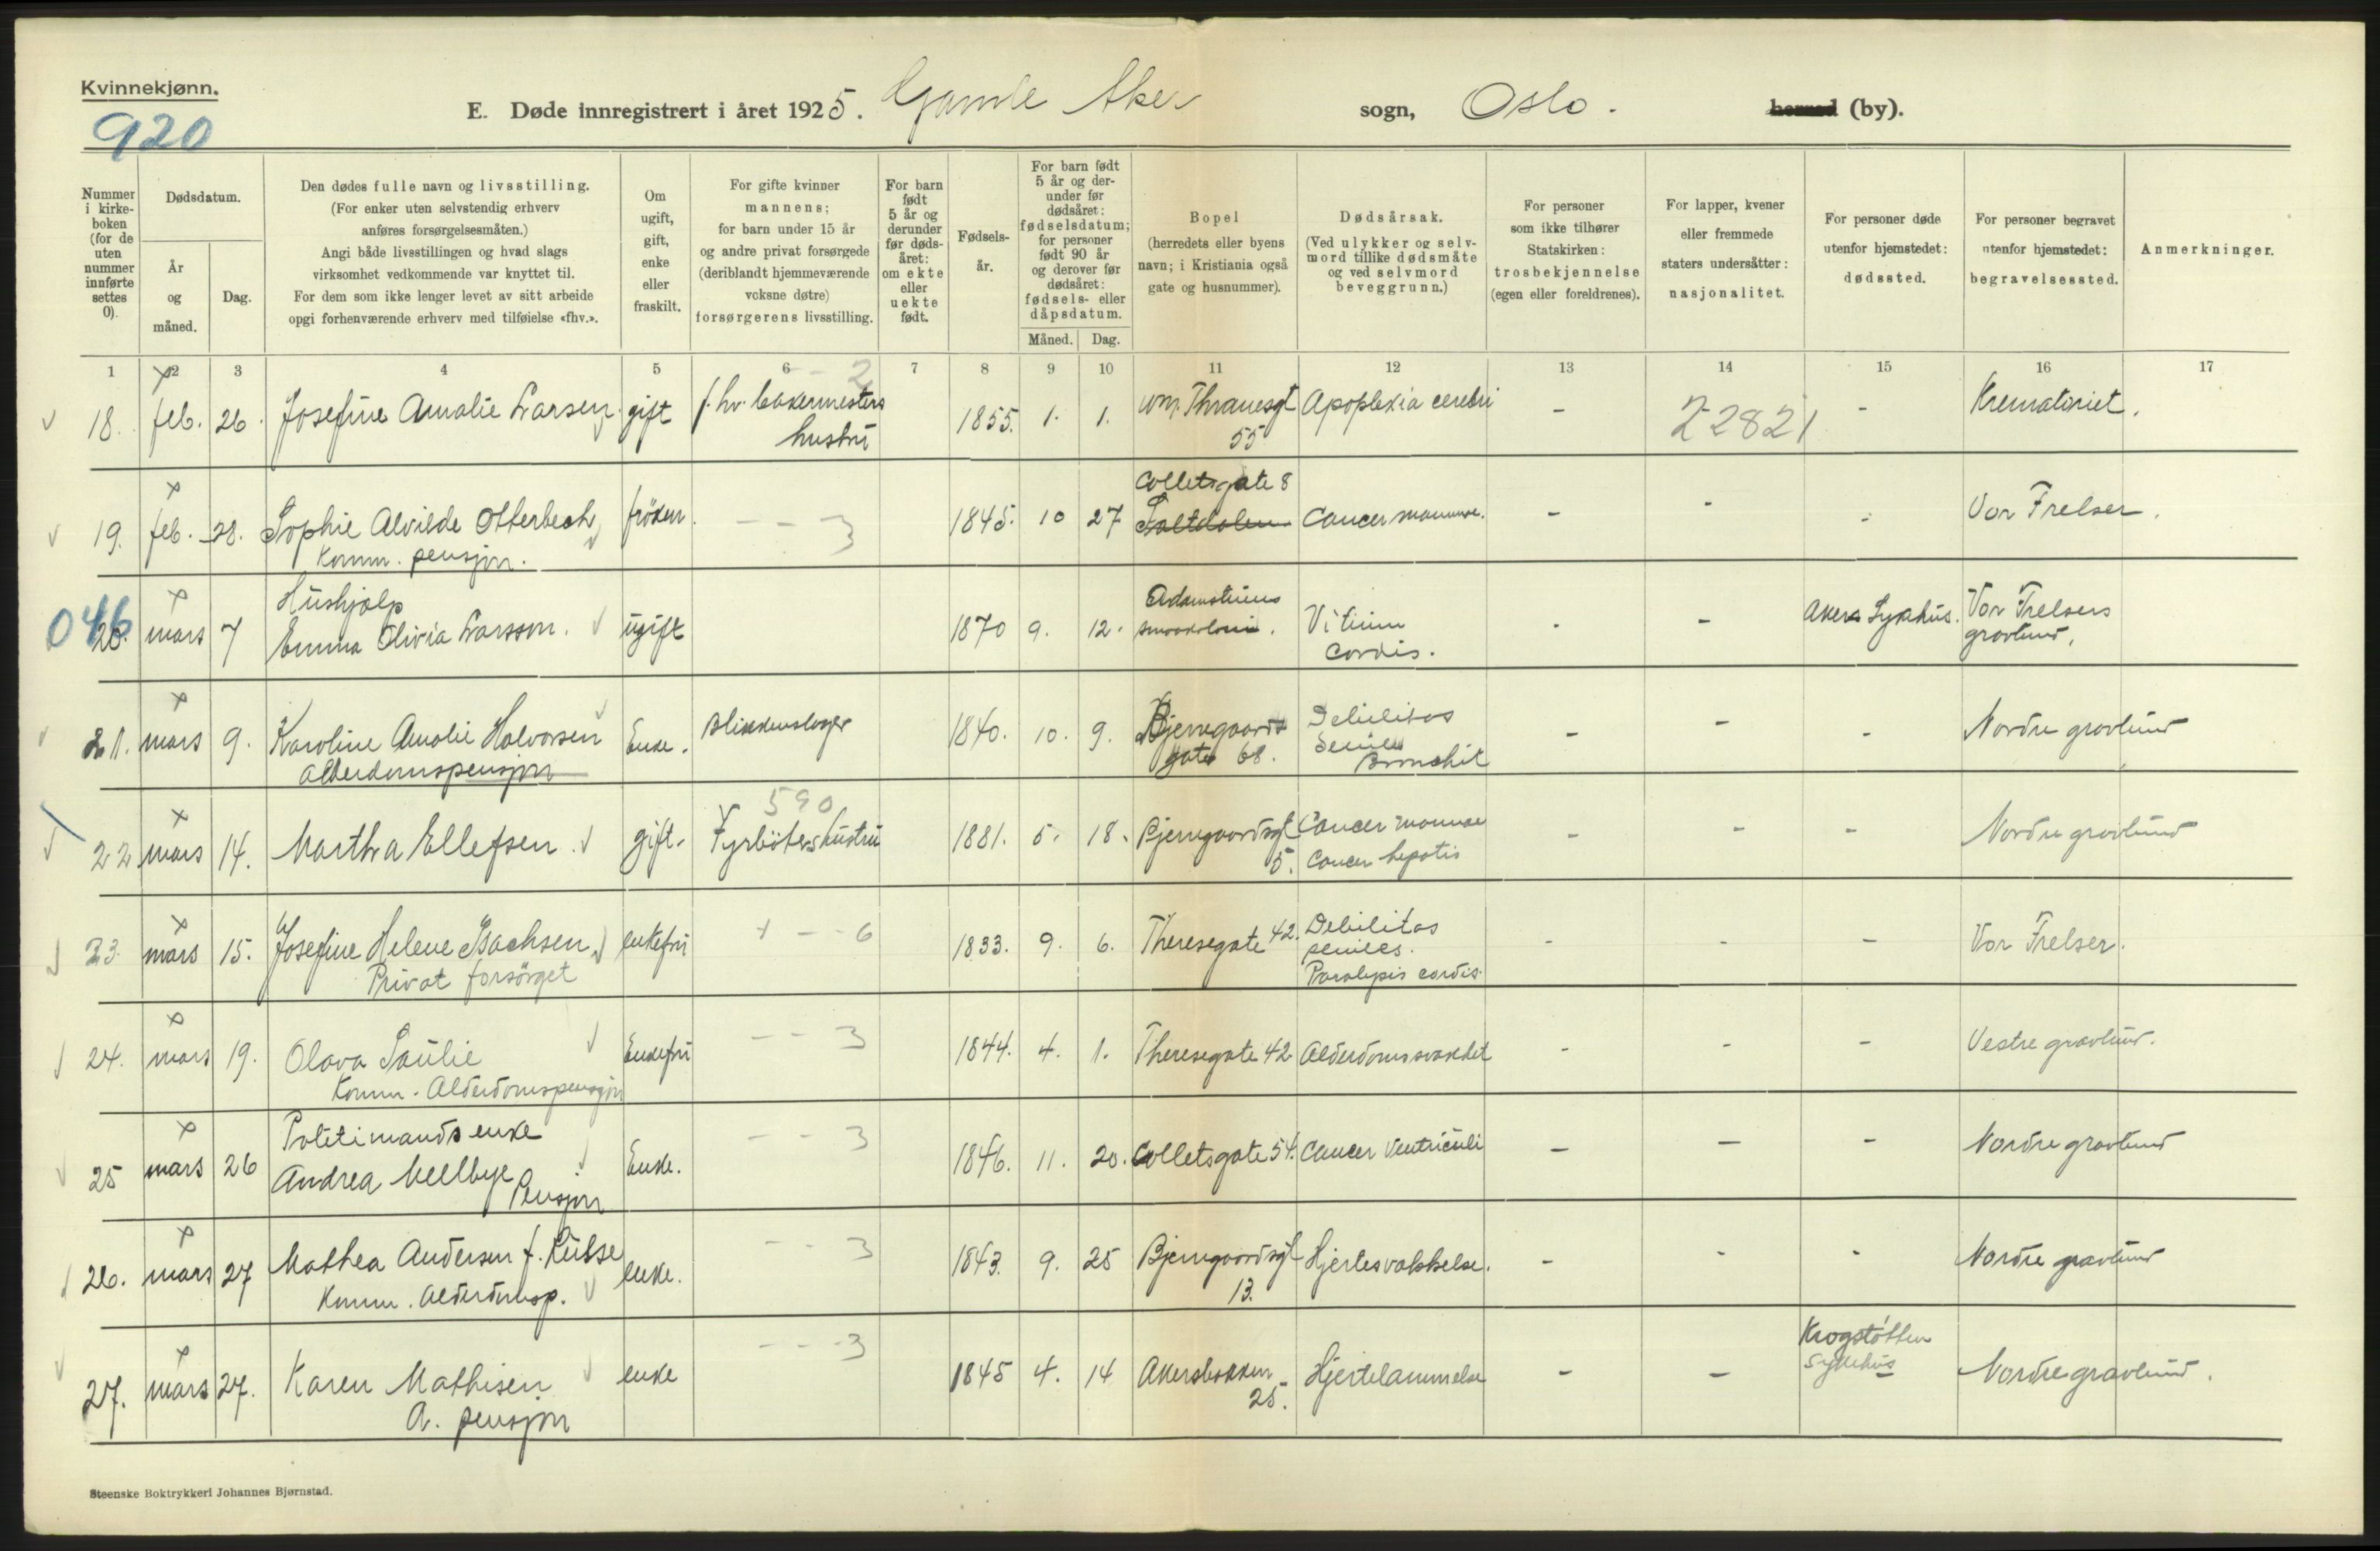 Kvinnekjønn.
920
E. Døde innregistrert i året 1925. Gamle Aker sogn, Oslo. herred (by).
Nummer i kirke-boken (for de uten nummer innførte settes 0).
Dødsdatum.
År og måned.
Dag.
Den dødes fulle navn og livsstilling.
(For enker uten selvstendig erhverv
anføres forsørgelsesmåten.)
Angi både livsstillingen og hvad slags
virksomhet vedkommende var knyttet til.
For dem som ikke lenger levet av sitt arbeide
opgi forhenværende erhverv med tilføielse «fhv.».
Om ugift, gift, enke eller fraskilt.
For gifte kvinner
mannens;
for barn under 15 år
og andre privat forsørgede
(deriblandt hjemmeværende
voksne døtre)
forsørgerens livsstilling.
For barn født 5 år og derunder før døds-året: om ekte eller uekte født.
Fødsels-år.
For barn født 5 år og der-under før dødsåret: fødselsdatum; for personer født 90 år og derover før dødsåret: fødsels- eller dåpsdatum.
Måned. Dag.
Bopel
(herredets eller byens
navn; i Kristiania også
gate og husnummer).
Dødsårsak.
(Ved ulykker og selv-
mord tillike dødsmåte
og ved selvmord
beveggrunn.)
For personer
som ikke tilhører
Statskirken:
trosbekjennelse
(egen eller foreldrenes).
For lapper, kvener
eller fremmede
staters undersåtter:
nasjonalitet.
For personer døde
utenfor hjemstedet:
dødssted.
For personer begravet
utenfor hjemstedet:
begravelsessted.
Anmerkninger.
1 2 3 4 5 6 7 8 9 10 11 12 13 14 15 16 17
-- 2
18. feb. 26. Josefine Amalie Larsen. gift f.hv. bakermesters 1855. 1. 1. Wm. Thranesgt Apoplexia cerebri - 22821 - Krematoriet.
hustru 55
Colletsgate 8
19. feb. 28. Sophie Alvilde Otterbech frøken. --- 3 1845. 10 27 Cancer mammae. - - - Vor Frelser.
Komm. pensjon.
046
Hushjelp
20. mars 7 Emma Olivia Larsson. ugift 1870 9. 12. Vitium - - Akers Sykehus. Vor Frelsers
cordis. gravlund.
21. mars 9. Karoline Amalie Halvorsen Enke. Blikkenslager 1840. 10. 9. Bjerregaards Debilitas - - - Nordre gravlund
Alderdomspensjon gate 68. seniles
Bronchit
590
22 mars 14. Martha Ellefsen. gift. Fyrbøters hustru 1881. 5. 18. Bjerregaardsgt Cancer mammae - - - Nordre gravlund
5. Cancer hepatis
23. mars 15. Josefine Helene Isachsen enkefru + -- 6 1833. 9. 6. Theresegate 42. Debilitas - - - Vor Frelser.
Privat forsørget seniles.
Paralysis cordis.
24. mars 19. Olava Paulie Enkefru --- 3 1844. 4. 1. Theresegate 42 Alderdomssvakhet - - - Vestre gravlund.
Komm. Alderdomspensjon
Politimands enke
25 mars 26 Andrea Mellbye Enke. --- 3 1846. 11. 20. Colletsgate 54. Cancer Ventriculi - - - Nordre gravlund
Pensjon
26. mars 27 Mathea Andersen f. enke. --- 3 1843. 9. 25 Bjerregaardsgt Hjertesvekkelse. - - - Nordre gravlund
Komm. Alderdomsp. 13.
27. mars 27. Karen Mathisen enke --- 3 1845 4. 14 Akersbakken Hjertelammelse - - Krogstøtten Nordre gravlund.
A. pensjon 25. Sykehus
Steenske Boktrykkeri Johannes Bjørnstad.